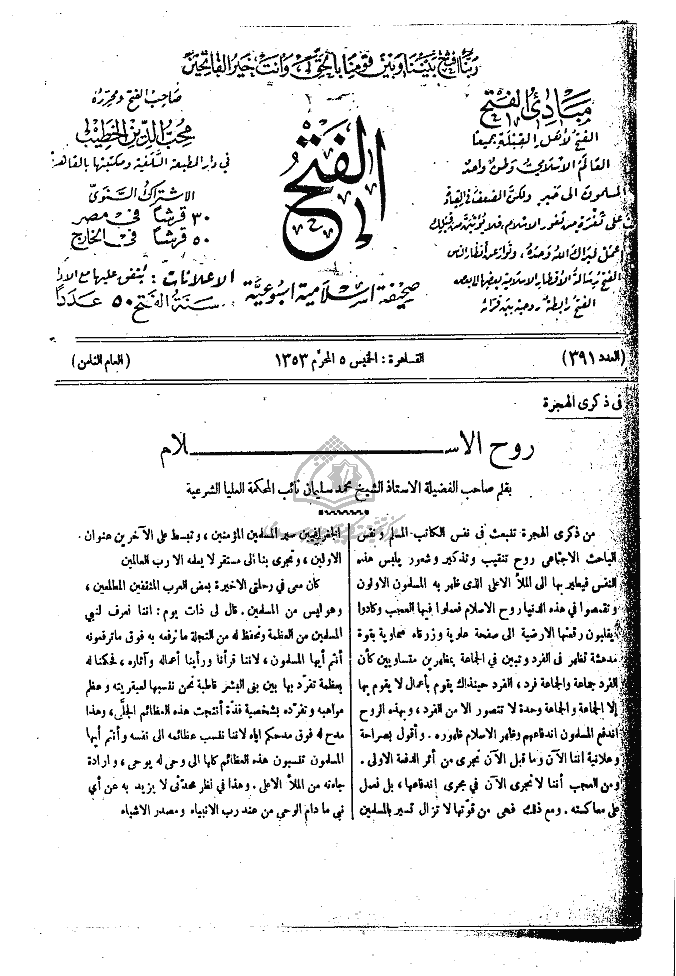 ربنا افتح بيننا وبين قومنا بالحق وأنت خير الفاتحين
مبادئ الفتح
الفتح لأهل القبلة جميعا
العالم الاسلامي وطن واحد
المسلمون الى خير ولكن الضعف في القيادة
على ثغرة من ثغور الاسلام، فلا يؤتين من قبلك
اعمل ليراك الله وحده، وتوار عن أنظار الناس
الفتح رسالة الأقطار الاسلامية بعضها الى بعض
الفتح رابطة روحية بين قرائه
الفتح
صحيفة اسلامية اسبوعية
صاحب الفتح ومحرره
محب الدين الخطيب
في دار المطبعة السلفية ومكتبتها بالقاهرة
الاشتراك السنوي
٣٠ قرشا في مصر
٥٠ قرشا في الخارج
الاعلانات : يتفق عليها مع الادا
سنة الفتح ٥٠ عددا
(العدد ٣٩١)
القاهرة : الخميس ٥ المحرم ١٣٥٣
(العام الثامن)
في ذكرى الهجرة
روح الاســـــلام
بقلم صاحب الفضيلة الاستاذ الشيخ محمد سليمان نائب المحكمة العليا الشرعية
من ذكرى الهجرة تنبعث في نفس الكاتب المسلم ونفس
الباحث الاجتماعي روح تنقيب وتذكير وشعور يلبس هذه
النفس فيطير بها الى الملأ الاعلى الذى ظهر به المسلمون الاولون
وتقمصوا في هذه الدنيا روح الاسلام فعملوا فيها العجب وكادوا
يقلبون رقعتها الارضية الى صفحة علوية وزرقاء سماوية بقوة
مدهشة تظهر في الفرد وتبين في الجماعة بمظهرين متساويين كأن
الفرد جماعة والجماعة فرد ، الفرد حينذاك يقوم بأعمال لا يقوم بها
إلا الجماعة والجماعة وحدة لا تتصور الا من الفرد ، وبهذه الروح
اندفع المسلمون اندفاعهم وظهر الاسلام ظهوره . وأقول بصراحة
وعلانية اننا الآن وما قبل الآن نجرى من أثر الدفعة الاولى .
ومن العجب أننا لا نجرى الآن في مجرى اندفاعها ، بل نعمل
على معاكسته . ومع ذلك فهى من قوتها لا تزال تسير بالمسلمين
الجغرافيين سير المسلمين المؤمنين ، وتبسط على الآخرين عنوان
الاولين ، وتجرى بنا الى مستقر لا يعلمه الا رب العالمين
كان معى في رحلتى الاخيرة بعض العرب المثقفين المطلعين ،
وهو ليس من المسلمين . قال لى ذات يوم : اننا نعرف لنبي
المسلمين من العظمة ونحفظ له من التجلة ما نرفعه به فوق ما ترفعونه
أنتم أيها المسلمون ، لاننا قرأنا ورأينا أعماله وآثاره ، فحكمنا له
بعظمة تفرد بها بين بنى البشر قاطبة نحن ننسبها لعبقريته وعظم
مواهبه وتفرده بشخصية فذة أنتجت هذه العظائم الجلى ، وهذا
مدح له فوق مدحكم اياه لاننا ننسب عظائمه الى نفسه وأنتم أيها
المسلمون تنسبون هذه العظائم كلها الى وحى له يوحى ، وارادة
جاءته من الملأ الاعلى . وهذا في نظر محدثى لا يزيد به عن أي
نبى ما دام الوحى من عند رب الانبياء ومصدر الاشياء